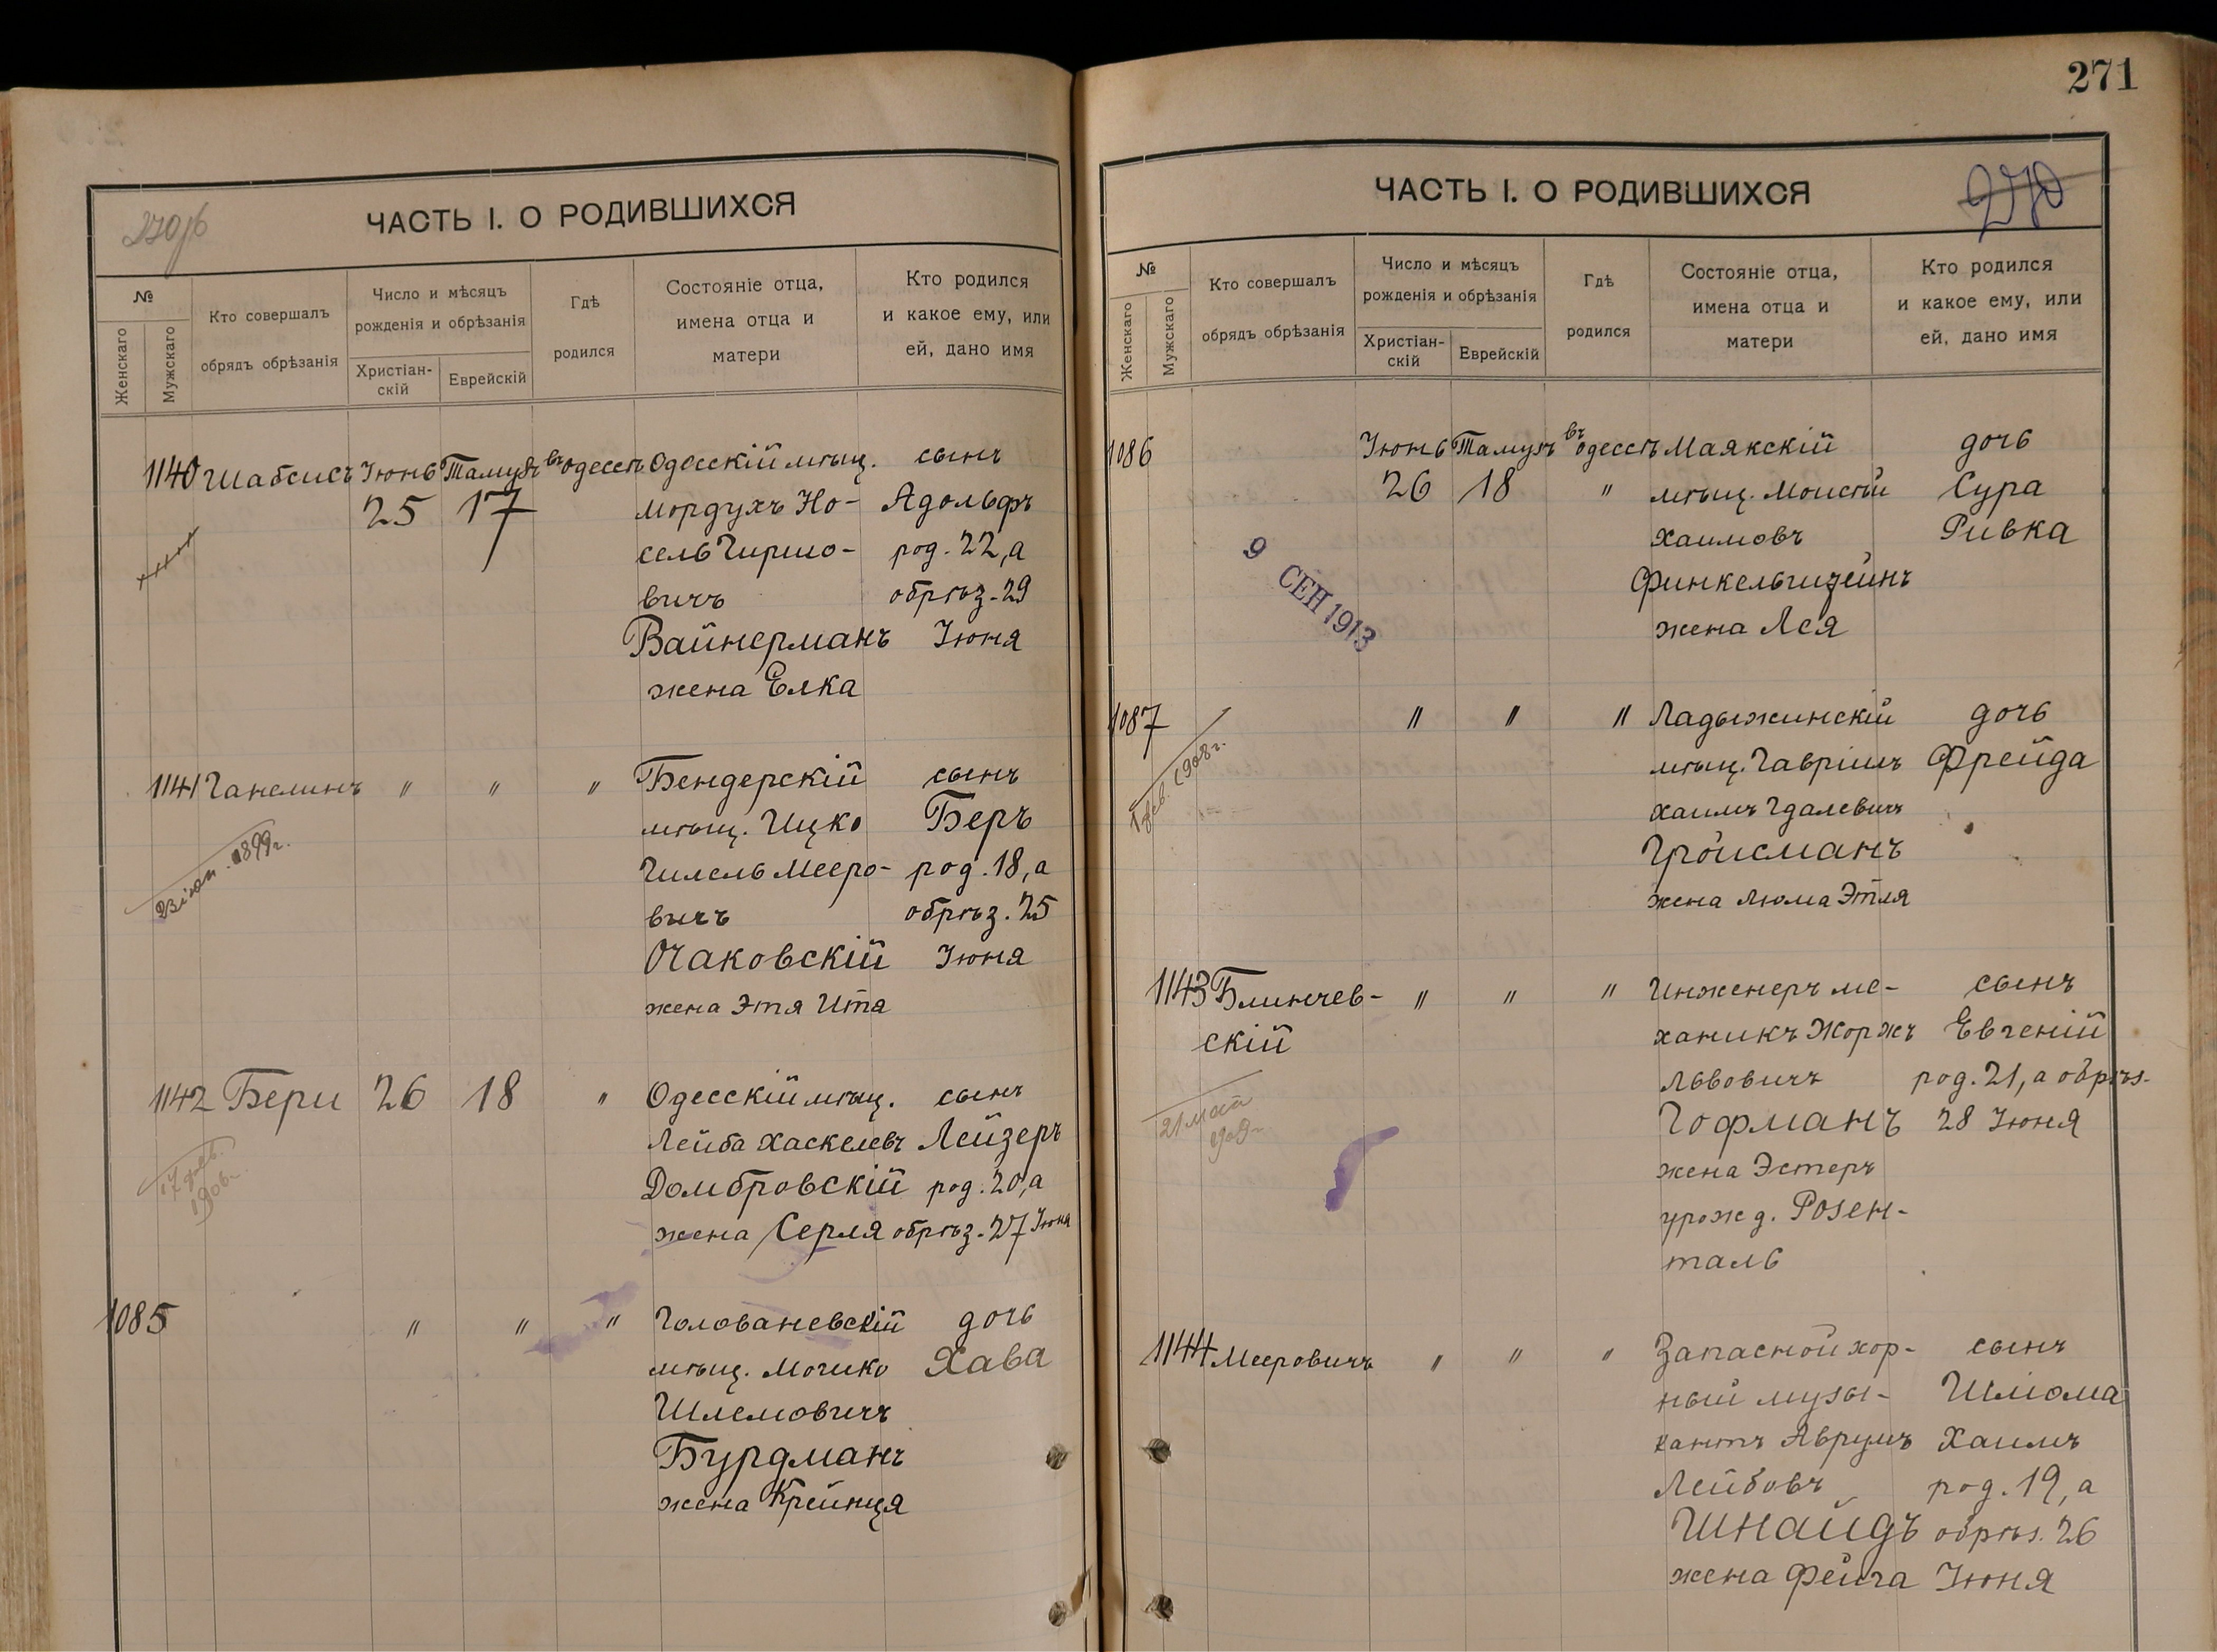 271
270
ЧАСТЬ I. О РОДИВШИХСЯ
№
Женскаго
Мужскаго
Кто совершалъ
обрядъ обрѣзанія
Число и мѣсяцъ
рожденія и обрѣзанія
Христіан-
скій
Еврейскій
Гдѣ
родился
Состояніе отца,
имена отца и
матери
Кто родился
и какое ему, или
ей, дано имя
1140 Шабсисъ Іюнь Тамузъ въ Одессѣ Одесскій мѣщ. сынъ
25 17 Мордухъ Но- Адольфъ
сель Гиршо- род. 22, а
вичъ обрѣз. 29
Вайнерманъ Іюня
жена Елка
1141 Ганелинъ " " " Бендерскій сынъ
мѣщ. Ицко Беръ
Гилель Мееро- род. 18, а
вичъ обрѣз. 25
Очаковскій Іюня
жена Этя Ита
1899г.
1142 Бери 26 18 " Одесскій мѣщ. сынъ
Лейба Хаскелевъ Лейзеръ
Домбровскій род. 20, а
жена Серля обрѣз. 27 Іюня
1906г.
1085 " " " Голованевскій дочь
мѣщ. Мошко Хава
Шлемовичъ
Бурдманъ
жена Крейнця
ЧАСТЬ I. О РОДИВШИХСЯ
№
Женскаго
Мужскаго
Кто совершалъ
обрядъ обрѣзанія
Число и мѣсяцъ
рожденія и обрѣзанія
Христіан-
скій
Еврейскій
Гдѣ
родился
Состояніе отца,
имена отца и
матери
Кто родился
и какое ему, или
ей, дано имя
1086 Іюнь Тамузъ въ Одессѣ Маякскій дочь
26 18 " мѣщ. Моисей Сура
Хаимовъ Ривка
Финкельштейнъ
жена Лея
9 СЕН 1913
1087 " " " Ладыжинскій дочь
мѣщ. Гавріилъ Фрейда
Хаимъ Гдалевичъ
Гройсманъ
жена Люма Этля
1908г.
1143 Блинчев- " " " Инженеръ ме- сынъ
скій ханикъ Жоржъ Евгеній
Львовичъ род. 21, а обрѣз.
Гофманъ 28 Іюня
жена Эстеръ
урожд. Розен-
таль
21 мая
1144 Мееровичъ " " " Запасной хор- сынъ
ный музы- Шліома
кантъ Аврумъ Хаимъ
Лейбовъ род. 19, а
Шнайдъ обрѣз. 26
жена Фейга Іюня